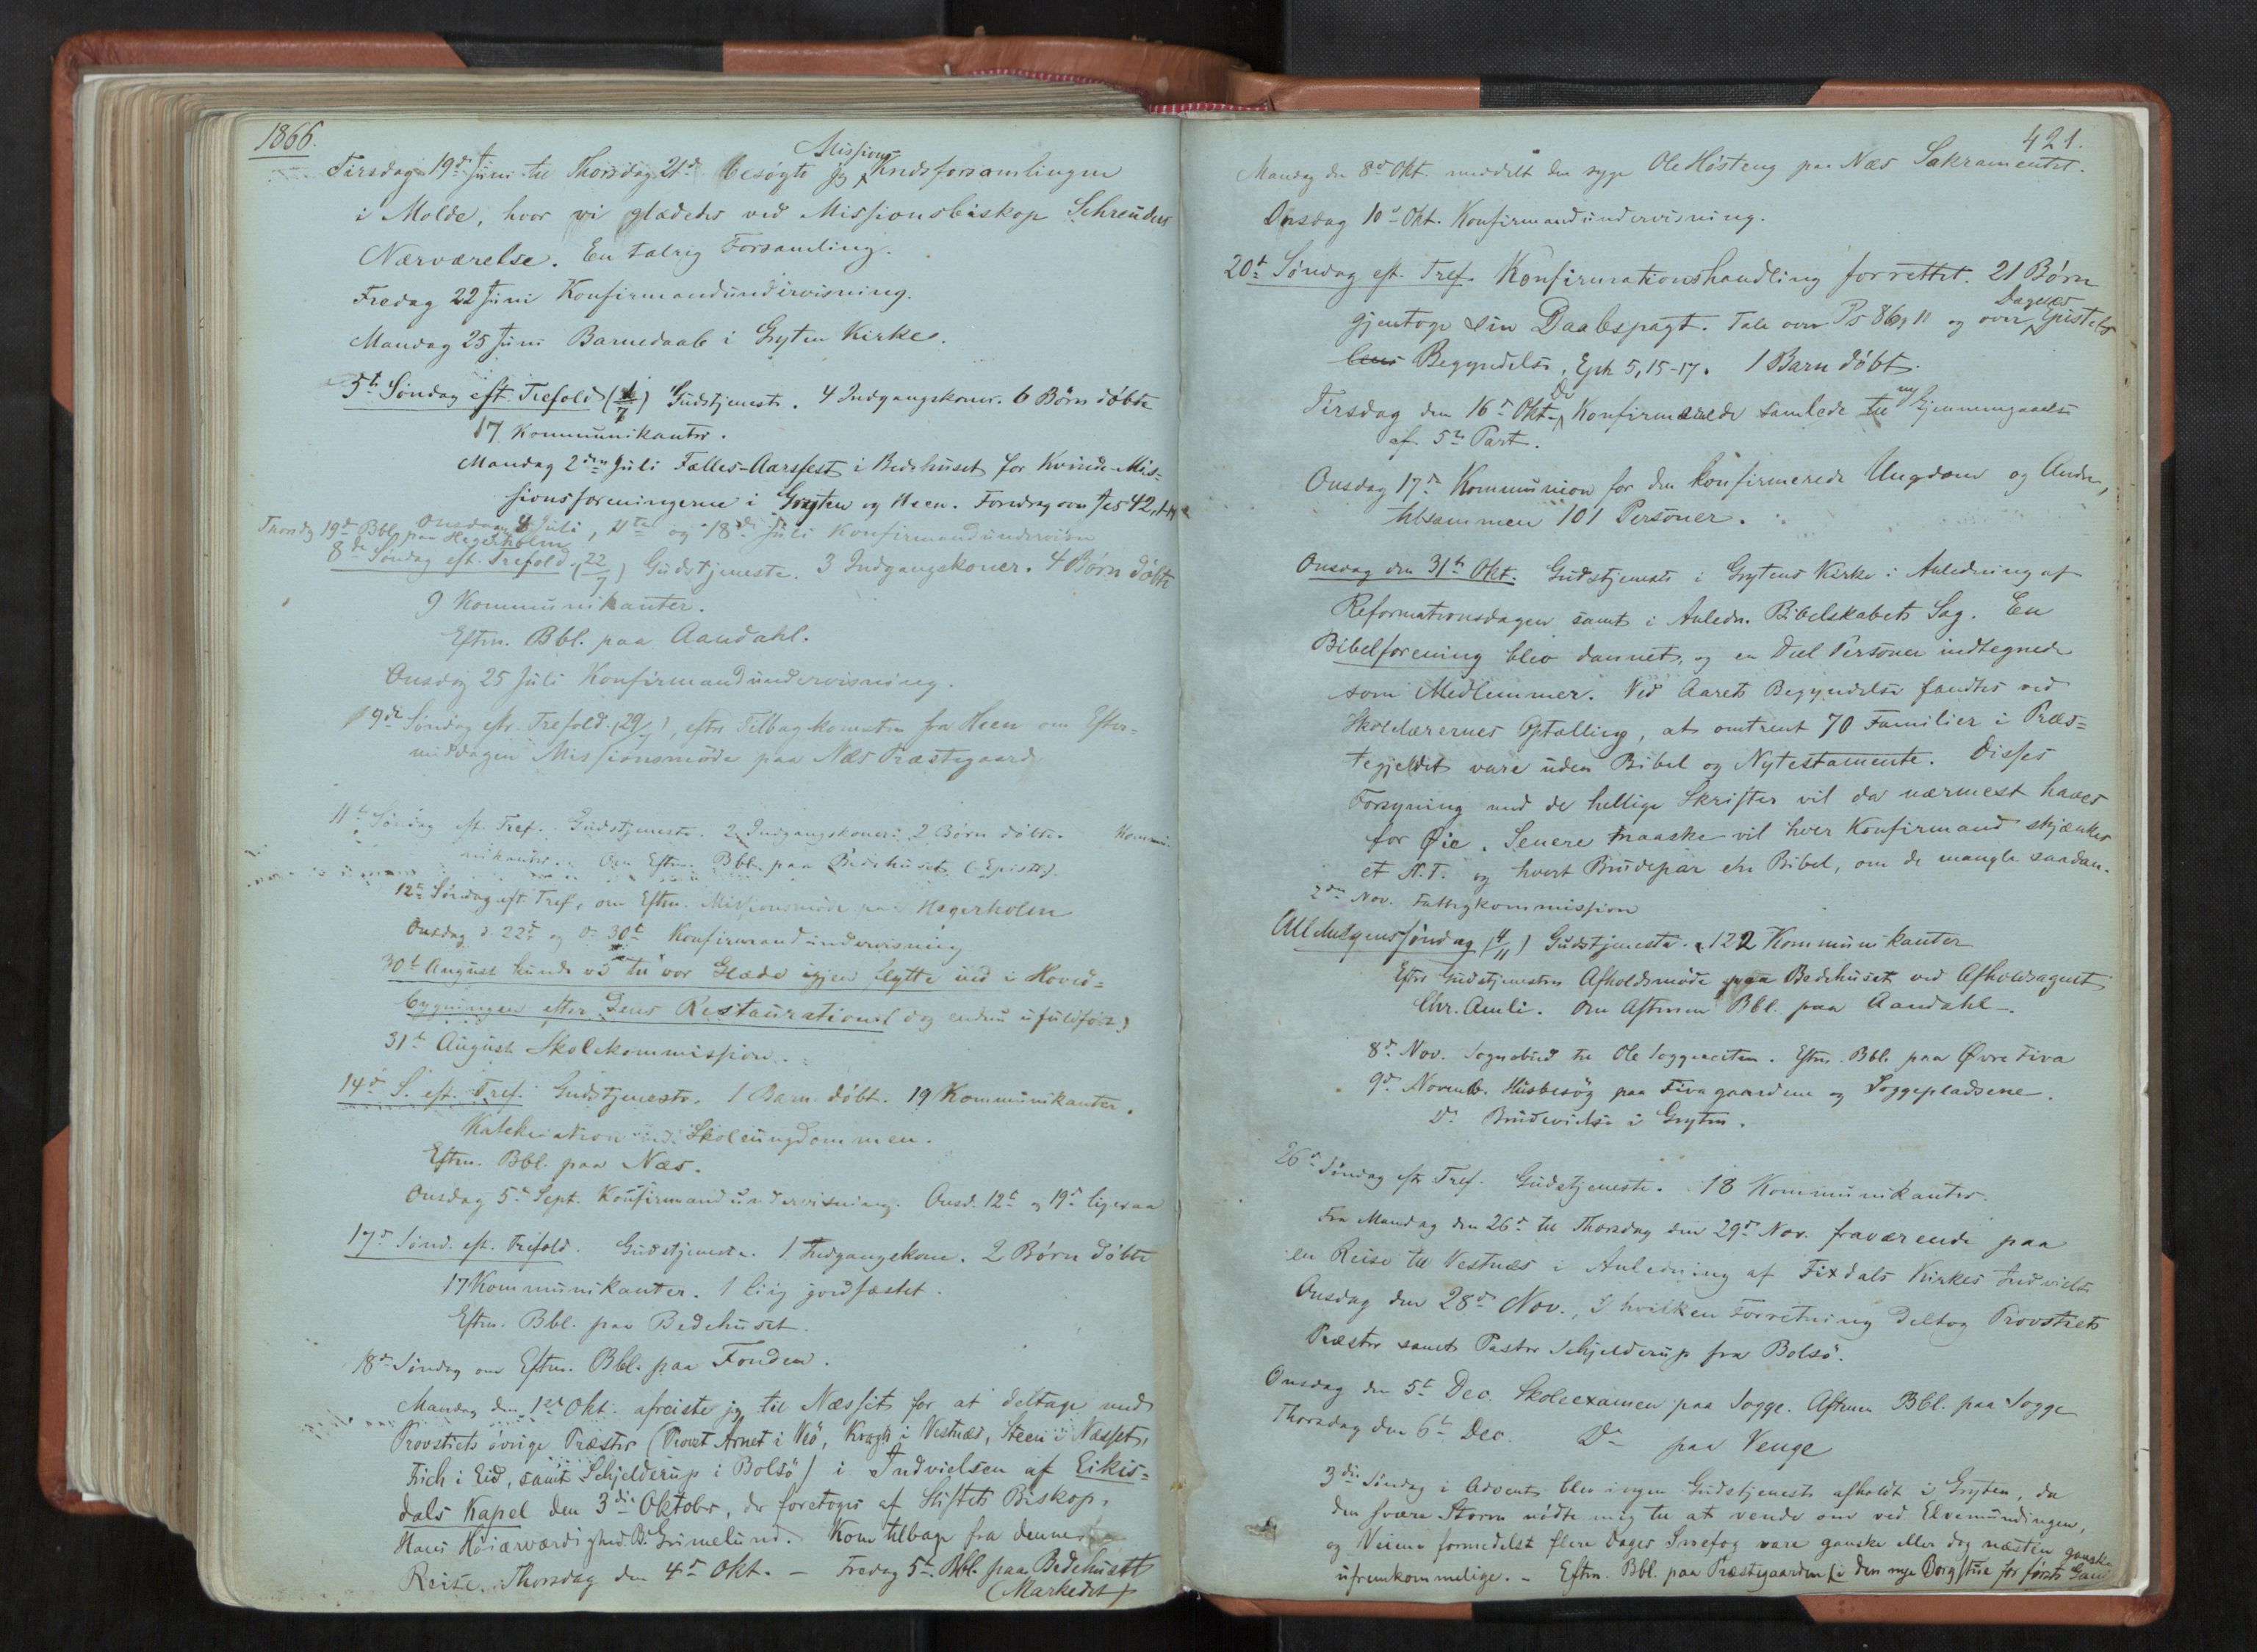 1866.
Missions-
Tirsdag 19de Juni til Thorsdag 21de besøgte jeg Kredsforsamlingen
i Molde, hvor vi glædedes ved Missionsbiskop Schreuders
Nærværelse. En talrig Forsamling.
Fredag 22 Juni Konfirmandundervisning.
Mandag 25 Juni Barnedaab i Gryten Kirke.
5te Søndag eft. Trefold (1/7) Gudstjeneste. 4 Indgangskoner. 6 Børn døbte
17 Kommunikanter.
Mandag 2den Juli Fælles-Aarsfest i Bedehuset for Kvinde-Mis-
sionsforeningerne i Gryten og Heen. Foredrag over Jes 42,
Onsdag 4 Juli, 11te og 18de Juli Konfirmandundervisn
Torsdg 19de Bbl. paa Hegerholm
8de Søndag eft. Trefold. (22/7) Gudstjeneste. 3 Indgangskoner. 4 Børn døbte
9 Kommunikanter.
Eftm. Bbl. paa Aandahl.
Onsdag 25 Juli Konfirmandundervisning.
9de Søndag eft. Trefold. (29/7), efter Tilbagekomsten fra Heen om Efter-
middagen Missionsmøde paa Næs Præstegaard
11te Søndag eft. Tref. Gudstjeneste. 2 Indgangskoner. 2 Børn døbte. Kommu-
nikanter. Om Eftm. Bbl. paa Bedehuset (Epist.).
12te Søndag eft. Tref. om Eftm. Missionsmøde paa Hegerholm
Onsdag d. 22de og D. 30te Konfirmandundervisning
30te August kunde vi til vor Glæde igjen flytte ind i Hoved-
bygningen efter dens Restauration (dog endnu ufuldført)
31te August Skolekommission.
14de S. eft. Tref. Gudstjeneste. 1 Barn døbt. 19 Kommunikanter.
Katekisation med Skoleungdommen.
Eftm. Bbl. paa Næs.
Onsdag 5te Sept. Konfirmandundervisning. Onsd. 12te og 19de ligesaa
17de Sønd. eft. Trefold. Gudstjeneste. 1 Indgangskone. 2 Børn døbte
17 Kommunikanter. 1 Liig jordfæstet.
Eftm. Bbl. paa Bedehuset.
18de Søndag om Eftm. Bbl. paa Fonden.
Mandag den 1ste Okt. afreiste jeg til Næsset for at deltage med
Provstiets øvrige Præster (Provst Arnet i Veø, Kragh i Vestnæs, Steen i Næsset,
Frich i Eid, samt Schjelderup i Bolsø) i Indvielsen af Eikis-
dals Kapel den 3die Oktober, der foretoges af Stiftets Biskop,
Hans Høiærværdighed B. Grimelund. Kom tilbage fra denne
Reise Thorsdag den 4de Okt. - Fredag 5te Bbl. paa Bedehuset
(Markedet)
421.
Mandag den 8de Okt. meddelt den syge Ole Høsteng paa Næs Sakramentet.
Onsdag 10de Okt. Konfirmandundervisning.
20de Søndag eft. Tref. Konfirmationshandling forrettet. 21 Børn
gjentoge sin Daabspagt. Tale over Ps 86, 11 og over Dagens Epistels
Begyndelse, Eph 5, 15-17. 1 Barn døbt.
Tirsdag den 16de Okt. De Konfirmerede samlede til ny Gjennemgaaelse
af 5te Part.
Onsdag 17de Kommunion for den konfirmerede Ungdom og Andre,
tilsammen 101 Personer.
Onsdag den 31te Okt. Gudstjeneste i Grytens Kirke i Anledning af
Reformationsdagen samt i Anledn. Bibelskabets Sag. En
Bibelforening blev dannet, og en Deel Personer indtegnede
som Medlemmer. Ved Aarets Begyndelse fandtes ved
Skolelærernes Optælling, at omtrent 70 Familier i Præs-
tegjeldet vare uden Bibel og Nytestamente. Disses
Forsyning med de hellige Skrifter vil da nærmest haves
for Øie. Senere maaske vil hver Konfirmand skjænkes
et N.T. og hvert Brudepar en Bibel, om de mangle saadan.
2den Nov. Fattigkommission
Allehelgenssøndag (4/11) Gudstjeneste. 122 Kommunikanter
Efter Gudstjenesten Afholdsmøde paa Bedehuset ved Afholdsagent
Chr. Amli. Om Aftenen Bbl. paa Aandahl.
8de Nov. Sognebud til Ole Soggemoen. Eftm. Bbl. paa Øvre Fiva
9de Novemb. Husbesøg paa Fivagaardene og Soggepladsene.
Do Brudevielse i Gryten.
26de Søndag eft. Tref. Gudstjeneste. 18 Kommunikanter.
Fra Mandag den 26de til Thorsdag den 29de Nov. fraværende paa
en Reise til Vestnæs i Anledning af Fixdals Kirkes Indvielse
Onsdag den 28de Nov., i hvilken Forretning deltog Provstiets
Præster samt Pastor Schjelderup fra Bolsø.
Onsdag den 5te Dec. Skoleexamen paa Sogge. Aftenen Bbl. paa Sogge
Thorsdag den 6te Dec. Do paa Venge
3die Søndag i Advent blev ingen Gudstjeneste afholdt i Gryten, da
den svære Storm nødte mig til at vende om ved Elvemundingen,
og Veiene formedelst flere Dages Snefog vare ganske eller dog næsten ganske
ufremkommelige. - Eftm. Bbl. paa Præstegaarden (i den nye Borgstue for første Gang